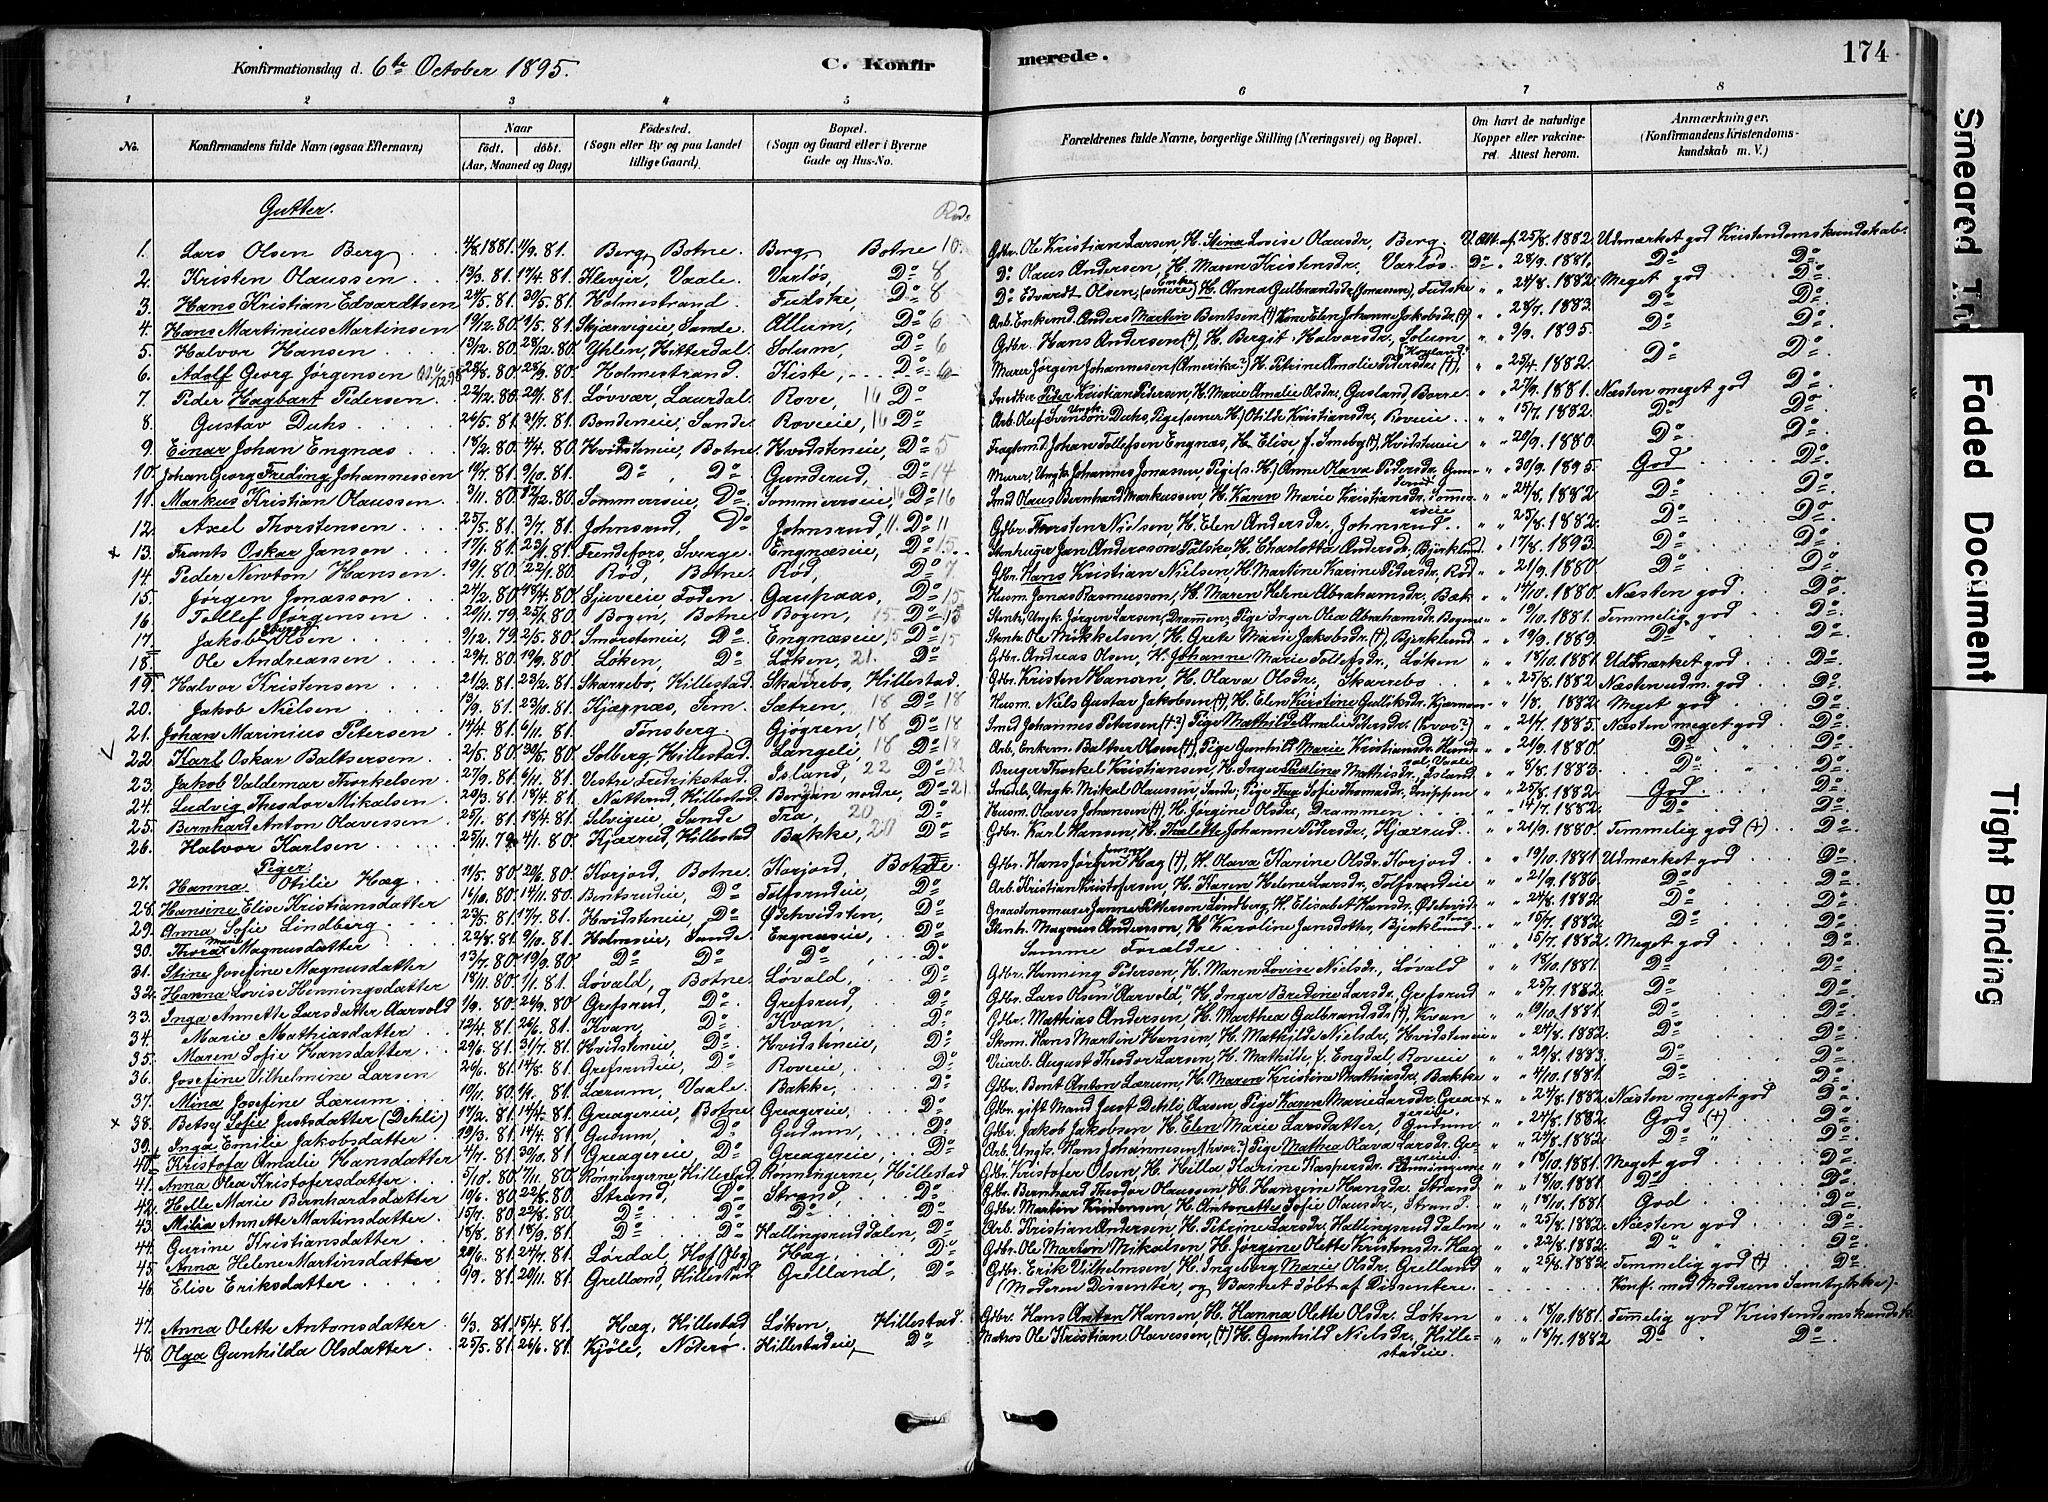 Konfirmationsdag d. 6te October 1895.
C. Konfirmerede.
174
1 2 3 4 5 6 7 8
No.
Konfirmandens fulde Navn (ogsaa Efternavn)
Naar
födt. döbt.
(Aar, Maaned og Dag)
Födested.
(Sogn eller By og paa Landet
tillige Gaard).
Bopæl.
(Sogn og Gaard eller i Byerne
Gade og Hus-No.
Forældrenes fulde Navne, borgerlige Stilling (Næringsvei) og Bopæl.
Om havt de naturlige
Kopper eller vakcine-
ret. Attest herom.
Anmærkninger.
(Konfirmandens Kristendoms-
kundskab m. V.)
Gutter.
Rode
1. Lars Olsen Berg 4/8.1881. 11/9.81. Berg, Botne Berg, Botne 10. Gdbr. Ole Kristian Larsen H. Stina Lovise Olausdr, Berg. V. Att. af 25/8.1882. Udmærket god Kristendomskundskab.
2. Kristen Olaussen 13/3.81. 17/4.81. Klevjer, Vaale. Varløs, Do 8 Do Olaus Andersen, H. Maren Kristensdr, Varløs. Do " 28/9.1881. Do Do
3. Hans Kristian Edvardtsen 24/5.81. 30/5.81. Holmestrand. Fudske, Do 8 Do Edvardt Olsen, (senere Enke) H. Anna Gulbrandsdr (Jonassen), Fudske " " 24/8.1882. Meget god Do
4. Hans Martinius Martinsen 19/12.80. 1/5.81. Skjærvigeie, Sande. Ullum, Do 6 Arb. Enkemd. Anders Martin Bentsen (+) Kone Elen Johanne Jakobsdr (+) " " 28/7.1883. Do Do
5. Halvor Hansen 13/12.80. 28/12.80. Yhlen, Hitterdal. Solum, Do 6 Gdbr. Hans Andersen (+) H. Bergit Halvorsdr, Solum " " 2/9.1895. Do Do
6. Adolf Georg Jörgensen 28/8.80. 28/9.80. Holmestrand. Kiste, 6 Murer Jörgen Johannesen (Amerika?) H. Petrine Amalie Pedersdr (+), " " 25/4.1882. Do Do
7. Peder Hagbart Pedersen 22/12.80. 20/1.81. Løvvær, Laurdal. Rove, 16 Do Snedker Peder Kristian Pedersen, H. Maren Amalie Olsdr, Gusland Borre " " 27/9.1881. Næsten meget god Do
8. Gustav Duhs 26/5.81. 31/7.81. Bondeneie, Sande. Roveie, 16 Do Arb. Oluf Svendsen Duhs, Pige (sener H.) Otilde Kristiansdr, Roveie. " " 15/7.1882. Do Do
9. Einar Johan Engnæs 18/2.80. 4/4.80. Hvidsteneie, Botne. Hvidsteneie, Do 5 Fraglemd. Johan Tollefsen Engnæs, H. Elise f. Smeby (+), Hvidsteneie " " 20/9.1880. Do Do
10. Johan Georg Freding Johannessen 19/7.81. 9/10.81. Do, Do Gunderud, Do 14 Murer, Ungk. Johannes Jonassen, Pige (s. H.) Anne Olava Pedersdr, Gunderud " " 30/9.1895. God Do
11. Markus Kristian Olaussen 3/11.80. 12/12.80. Sommerseie, Do Sommerseie, 16 Do 16 Smd. Olaus Bernhard Markussen, H. Karen Marie Kristiansdr, Sommerseie " " 24/8.1882. Do Do
12. Axel Thorstensen 25/5.81. 3/7.81. Johnsrud, Do Johnsrud, 11. Do 11 Gdbr. Thorsten Nielsen, H. Elen Andersdr, Johnsrud. " " 25/8.1882. Do Do
x 13. Frants Oskar Jansen 17/1.81. 23/1.81. Frendefors, Sverge. Engnæseie, Do 15. Stenhuger Jan Andersson Falske, H. Charlotta Andersdr, Bjerklund " " 17/8.1893. Do Do
14. Peder Newton Hansen 19/1.80. 22/1.80. Rød, Botne. Rød, Do 7 Gdbr. Hans Kristian Nielsen, H. Martine Karine Pedersdr, Rød " " 21/9.1880 Do Do
15. Jørgen Jonassen 24/2.80. 18/4.80. Sjuveie Foden Gaupaas, Do 15 Husm. Jonas Rasmussen, H. Maren Helene Abrahamsdr, Bæk " " 14/10.1880. Næsten god. Do
16. Tollef Jørgensen 20/11.79. 25/2.80. Bogen, Botne Bogen, 15. Do 15 Stenh. Ungk. Jørgen Larsen, Drammen; Pige Inger Olea Abrahamsdr, Bogen " " 19/10.1881. Temmelig god Do
17. Jakob Olsen 9/12.79. 2/5.80. Smørsteneie, Do Engnæseie, 15 Do 15 Stenh. Ole Mikkelsen, H. Grete Marie Jakobsdr (+), Bjerklund " " 19/9.1889. Do Do
18. Ole Andreassen 29/7.80. 19/9.80. Løken, Do Løken, 21. Do Gdbr. Andreas Olsen, H. Johanne Marie Tollefsdr, Løken " " 18/10.1881. Udmærket god Do
19. Halvor Kristensen 21/2.81. 23/2.81. Skarrebo, Hillestad. Skarrebo, Hillestad. Gdbr. Kristen Hansen, H. Olava Olsdr, Skarrebo " " 25/8.1882. Næsten udm. god Do
20. Jakob Nielsen 13/9.81. 23/10.81. Kjærnæs, Sem. Sætren, 18 Do 18 Husm. Niels Gustav Jakobsen (+), H. Elen Kristine Gulliksdr, Kjærnæs " " 1/8.1882. Meget god Do
21. Johan Marinius Petersen 14/4.81. 6/11.81. Tönsberg Gjøgren, 18 Do 18 Smed Johannes Petersen (+?) Pige Mathilde Amalie Petersdr. (hvor?) " " 21/7.1885. Næsten meget god Do
22. Karl Oskar Baltsersen 2/5.80. 30/5.80. Solberg, Hillestad. Langeli, 18 Do 18 Arb. Enkem. Baltser Olsen (+), Pige Gunhild Marie Kristiansdr. " " 21/9.1880. Do Do
23. Jakob Valdemar Thorkelsen 27/9.81. 6/11.81. Vestre Fredrikstad. Island, 22 Do 22 Brøger Thorkel Kristiansen, H. Inger Pauline Mathisdr, Island " " 8/8.1883. Do Do
24. Ludvig Theodor Mikalsen 20/3.81. 18/4.81. Nattrud, Hillestad. Bergan nordre, Do 21 Smedsv., Ungk. Mikal Olaussen, Sande; Pige Thea Sofie Thomasdr, Snippen " " 25/8.1882. God. Do
25. Bernhard Anton Olavessen 25/1.81. 18/4.81. Selvigeie, Sande Fra, 20 Do Husm. Olaves Johansen (+) H. Jørgine Olsdr, Drammen " " 14/7.1882. Do Do
26. Halvor Karlsen 25/11.79. 4/1.80. Kjærrud, Hillestad Bakke, 20 Do Gdbr. Karl Hansen, H. Thalette Johanne Pedersdr, Kjærrud. " " 21/9.1880. Temmelig god (+) Do
Piger
27. Hanna Otilie Hæg 19/5.80. 20/6.80. Korjord, Botne. Korjord, Botne. Gdbr. Hans Jørgen Jensen Hæg (+), H. Olava Karine Olsdr. Korjord " " 19/10.1881. Udmærket god Do
28. Hansine Elise Kristiansdatter 16/10.80. 14/11.80. Bentsrudeie, Do Tolfsrudeie, Do Arb. Kristian Kristofersen, H. Karen Helene Larsdr, Tolfsrudeie " " 21/9.1886. Do Do
29. Anna Sofie Lindberg 23/5.81. 17/7.81. Hvidsteneie, Do Ødehvidsten, Do Graastensmurer Janne Petterson Lindberg, H. Elisabet Hansdr, Ødehvidsten " " 24/8.1882. Do Do
30. Thora Marie Magnusdatter 22/8.81. 9/10.81. Holmseie, Sande Engnæseie, Do Stenh. Magnus Anderson, H. Karoline Jansdotter, Bjerklund " " 15/7.1882. Do Do
31. Stine Josefine Magnusdatter 13/7.80. 19/9.80. Do Do Do Do Samme Forældre " " 15/7.1882. Meget god Do
32. Hanna Lovise Henningsdatter 18/11.80. 1/1.81. Løvald, Botne Løvald, Do Gdbr. Henning Pedersen, H. Maren Lovise Nielsdr, Løvald " " 18/10.1881. Do Do
33. Inga Annette Larsdatter Aarvold 1/9.80. 26/9.80. Grefsrud, Do Grefsrud, Do Gdbr. Lars Olsen "Aarvold", H. Inger Bredine Larsdr, Grefsrud " " 25/7.1882. Do Do
34. Marie Mathiasdatter 12/4.81. 26/6.81. Kvan, Do Kvan, Do Gdbr. Mathias Andersen, H. Marthea Gulbrandsdr (+), Kvan " " 19/10.1881. Do Do
35. Maren Sofie Hansdatter 29/6.81. 31/7.81. Hvidsteneie, Do Hvidsteneie, Do Skom. Hans Martin Hansen, H. Mathilde Nielsdr, Hvidsteneie " " 24/8.1882. Do Do
36. Josefine Vilhelmine Larsen 26/6.81. 14/8.81. Grefsrudeie, Do Roveie, Do Veiarb. August Theodor Larsen, H. Mathilde, f. Engdal, Roveie " " 29/8.1883. Do Do
37. Mina Josefine Lærum 10/11.81. Lærum, Vaale. Bakke, Do Gdbr. Bent Anton Lærum, H. Maren Kristine Mathiasdr, Bakke " " 4/10.1881. Do Do
x 38. Betsy Sofie Justsdatter (Dehli) 17/2.81. 14/4.81. Greagereie, Botne. Greagereie, Do Gdbr. gift Mand Just Dehli Aasen Pige Karen Marie Larsdr, Greagereie " 24/8.1882. Næsten meget god Do
39. Inga Emilie Jakobsdatter 19/3.81. 14/4.81. Gudum, Do Gudum, Do Gdbr. Jakob Jakobsen H. Elen Marie Larsdatter, Gudum " " 24/8.1882. God (+) Do
40. Kristofa Amalie Hansdatter 4/7.81. 30/10.81. Greagereie, Do Greagereie, Do Arb. Ungk. Hans Johannesen (hvor?) Pige Mathea Olava Larsdr, Greagereie " " 24/8.1882. Do " Do
41. Anna Olea Kristofersdatter 5/10.80. 7/11.80. Rønningerne, Hillestad Rønningerne, Hillestad Gdbr. Kristofer Olsen, H. Hilla Karine Kaspersdr. Rønningerne " " 18/10.1881. Meget god Do
42. Helle Marie Bernhardsdatter 19/6.80. 22/8.80. Strand, Do Strand, Do Gdbr. Bernhard Theodor Olaussen H. Hansine Hansdr. Strand " " 18/10.1881. Do Do
43. Milia Annette Martinsdatter 15/7.80. 22/8.80. Do Do Do, Do Gdbr. Martin Kristensen, H. Antonette Sofie Olausdr, Strand " " 18/10.1881 God Do
44. Gurine Kristiansdatter 18/8.81. 18/9.81. Do Do Hallingsrud Dalen, Do Arb. Kristian Andersen, H. Petrine Larsdr, Hallingsrud Dalen " " 25/8.1882. Næsten god Do
45. Anna Helene Martinsdatter 20/6.81. 24/7.81. Lørdal, Hof Hæg, Do Gdbr. Ole Marten Mikalsen, H. Jørgine Olette Kristensdr, Hæg " " 22/8.1882. Do " Do
46. Elise Eriksdatter 9/9.81. 20/11.81. Grelland, Hillestad Grelland, Do Gdbr. Erik Vilhelmsen, H. Ingeborg Marie Olsdr, Grelland " " 25/8.1882. Temmelig god (+) Do
(Moderen Dissenter, og Barnet döbt af Dissentere. Konf. med Moderens Samtykke)
47. Anna Olette Antonsdatter 6/3.81. 15/4.81. Hæg, Hillestad Løken, Hillestad. Gdbr. Hans Anton Hansen, H. Hanna Olette Olsdr, Løken " " 18/10.1881. Temmelig god Kristendomskundsk.
48. Olga Gunhilda Olsdatter 25/5.81. 26/6.81. Kjøle, Nøterø. Hillestadeie, Do Matros Ole Kristian Olavessen, (+) H. Gunhild Nielsdr, Hillestadeie. " " 18/7.1882 Do " Do
Smeared
Faded Document
Tight Binding